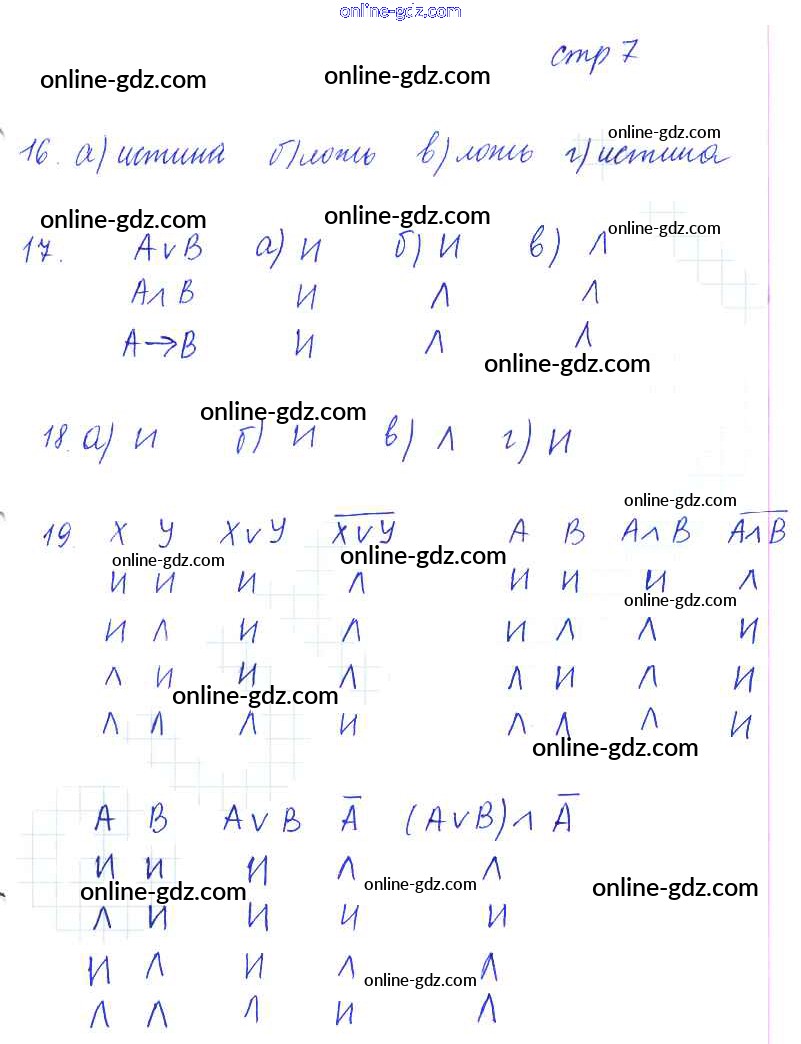 online-gdz.com
стр 7
online-gdz.com online-gdz.com
online-gdz.com
16. а) истина б) ложь в) ложь г) истина
online-gdz.com online-gdz.com online-gdz.com
17. A∨B а) И б) И в) Л
A∧B И Л Л
A→B И Л Л
online-gdz.com
online-gdz.com
18. а) И б) И в) Л г) И
online-gdz.com
19. X Y X∨Y \overline{X∨Y} A B A∧B \overline{A∧B}
online-gdz.com online-gdz.com
И И И Л И И И Л
online-gdz.com
И Л И Л И Л Л И
Л И И Л Л И Л И
online-gdz.com
Л Л Л И Л Л Л И
online-gdz.com
A B A∨B A̅ (A∨B)∧A̅
И И И Л Л
online-gdz.com online-gdz.com online-gdz.com
Л И И И И
И Л И Л Л
online-gdz.com
Л Л Л И Л